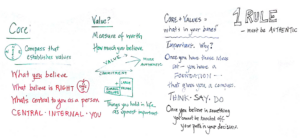 Core:
Compass that
establishes values
What you believe
What believe is RIGHT
What's central to you as a person
CENTRAL · INTERNAL · YOU
Value?
Measure of worth
How much you believe
VALUE
MORE
IMPORTANT
COMMITMENT
Things you hold in life,
as utmost important
CORE + VALUES =
what's in your bones
Important. Why?
Once you have these ideas
you have a
FOUNDATION
that gives you a compass.
THINK · SAY · DO
Once you believe in something
you must be rooted of/
your path is your decisions.
1 RULE
- must be AUTHENTIC